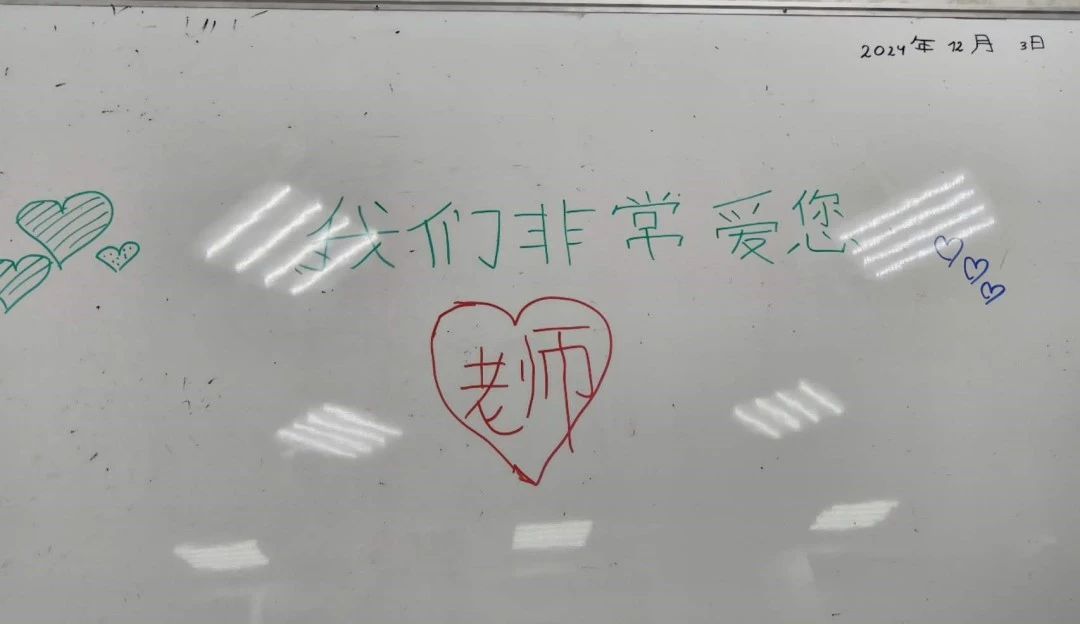 2024年 12月 3日
我们非常爱您
老师